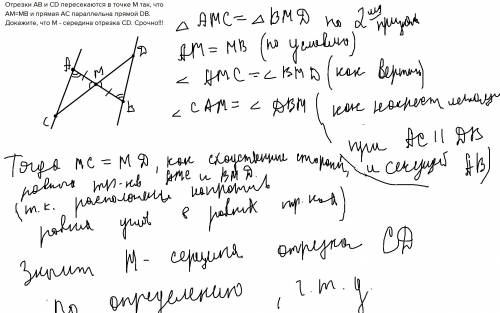 Отрезки АВ и CD пересекаются в точке М так, что
АМ=МВ и прямая АС параллельна прямой DB.
Докажите, что М - середина отрезка CD. Срочно!!!
△ AMC = △ BMD по 2 призн
AM = MB (по условию)
∠ AMC = ∠ BMD (как вертик)
∠ CAM = ∠ DBM (как накрест лежащие
при AC || DB
и секущей AB)
A
D
M
B
C
Тогда MC = MD, как сходственные стороны
равных тр-ков AMC и BMD.
(т.к. расположены напротив
равных углов в равных тр-ках)
Значит M - середина отрезка CD
по определению, ч.т.д.